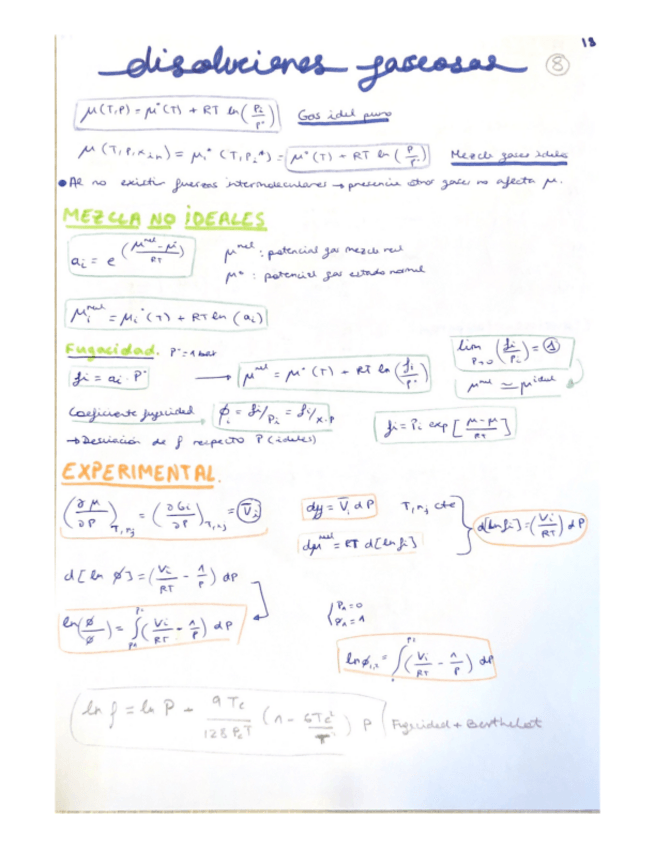 18
disoluciones gaseosas ⑧
μ(T,P) = μ°(T) + RT ln(Pi/P°) Gas ideal puro
μ(T,P,xi,n) = μi*(T,Pi*) = μ°(T) + RT ln(P/P°) Mezcla gases ideales
• Al no existir fuerzas intermoleculares → presencia otros gases no afecta μ.
MEZCLA NO IDEALES
ai = e^((μreal - μi°)/RT) μreal: potencial gas mezcla real
μ°: potencial gas estado normal
μi real = μi°(T) + RT ln(ai)
Fugacidad. P° = 1 bar lim P→0 (fi/Pi) = ①
fi = ai · P° → μreal = μ°(T) + RT ln(fi/P°) μreal ≃ μideal
Coeficiente fugacidad ϕi = fi/Pi = fi/x·P fi = Pi exp[(μ-μ)/RT]
→ Desviación de f respecto P (ideales)
EXPERIMENTAL.
(∂μ/∂P)T,nj = (∂Gi/∂P)T,nj = V̄i dμ = V̄i dP T, nj cte d[ln fi] = (Vi/RT) dP
dμreal = RT d[ln fi]
d[ln ϕ] = (Vi/RT - 1/P) dP
ln(ϕ/ϕ) = ∫P1 P2 (Vi/RT - 1/P) dP { P1 = 0
ϕ1 = 1
ln ϕi,2 = ∫ P2 (Vi/RT - 1/P) dP
ln f = ln P - 9Tc/128PcT (1 - 6Tc²/T²) P Fugacidad + Berthelot